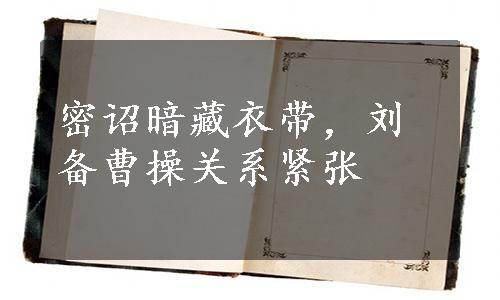 密诏暗藏衣带，刘
备曹操关系紧张